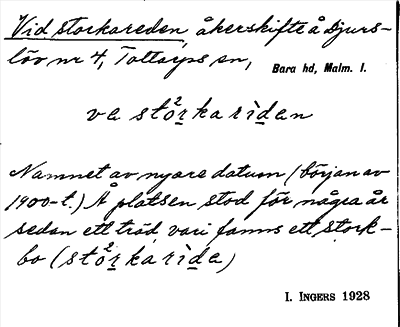 Vid storkareden, åkerskifte å Djurs-
löv nr 4, Tottarps sn,
Bara hd, Malm. l.
va stò2rkarìdan
Namnet av nyare datum (början av
1900-t.) Å platsen stod för några år
sedan ett träd, vari fanns ett stork-
bo (stò2rkarìda)
I. INGERS 1928